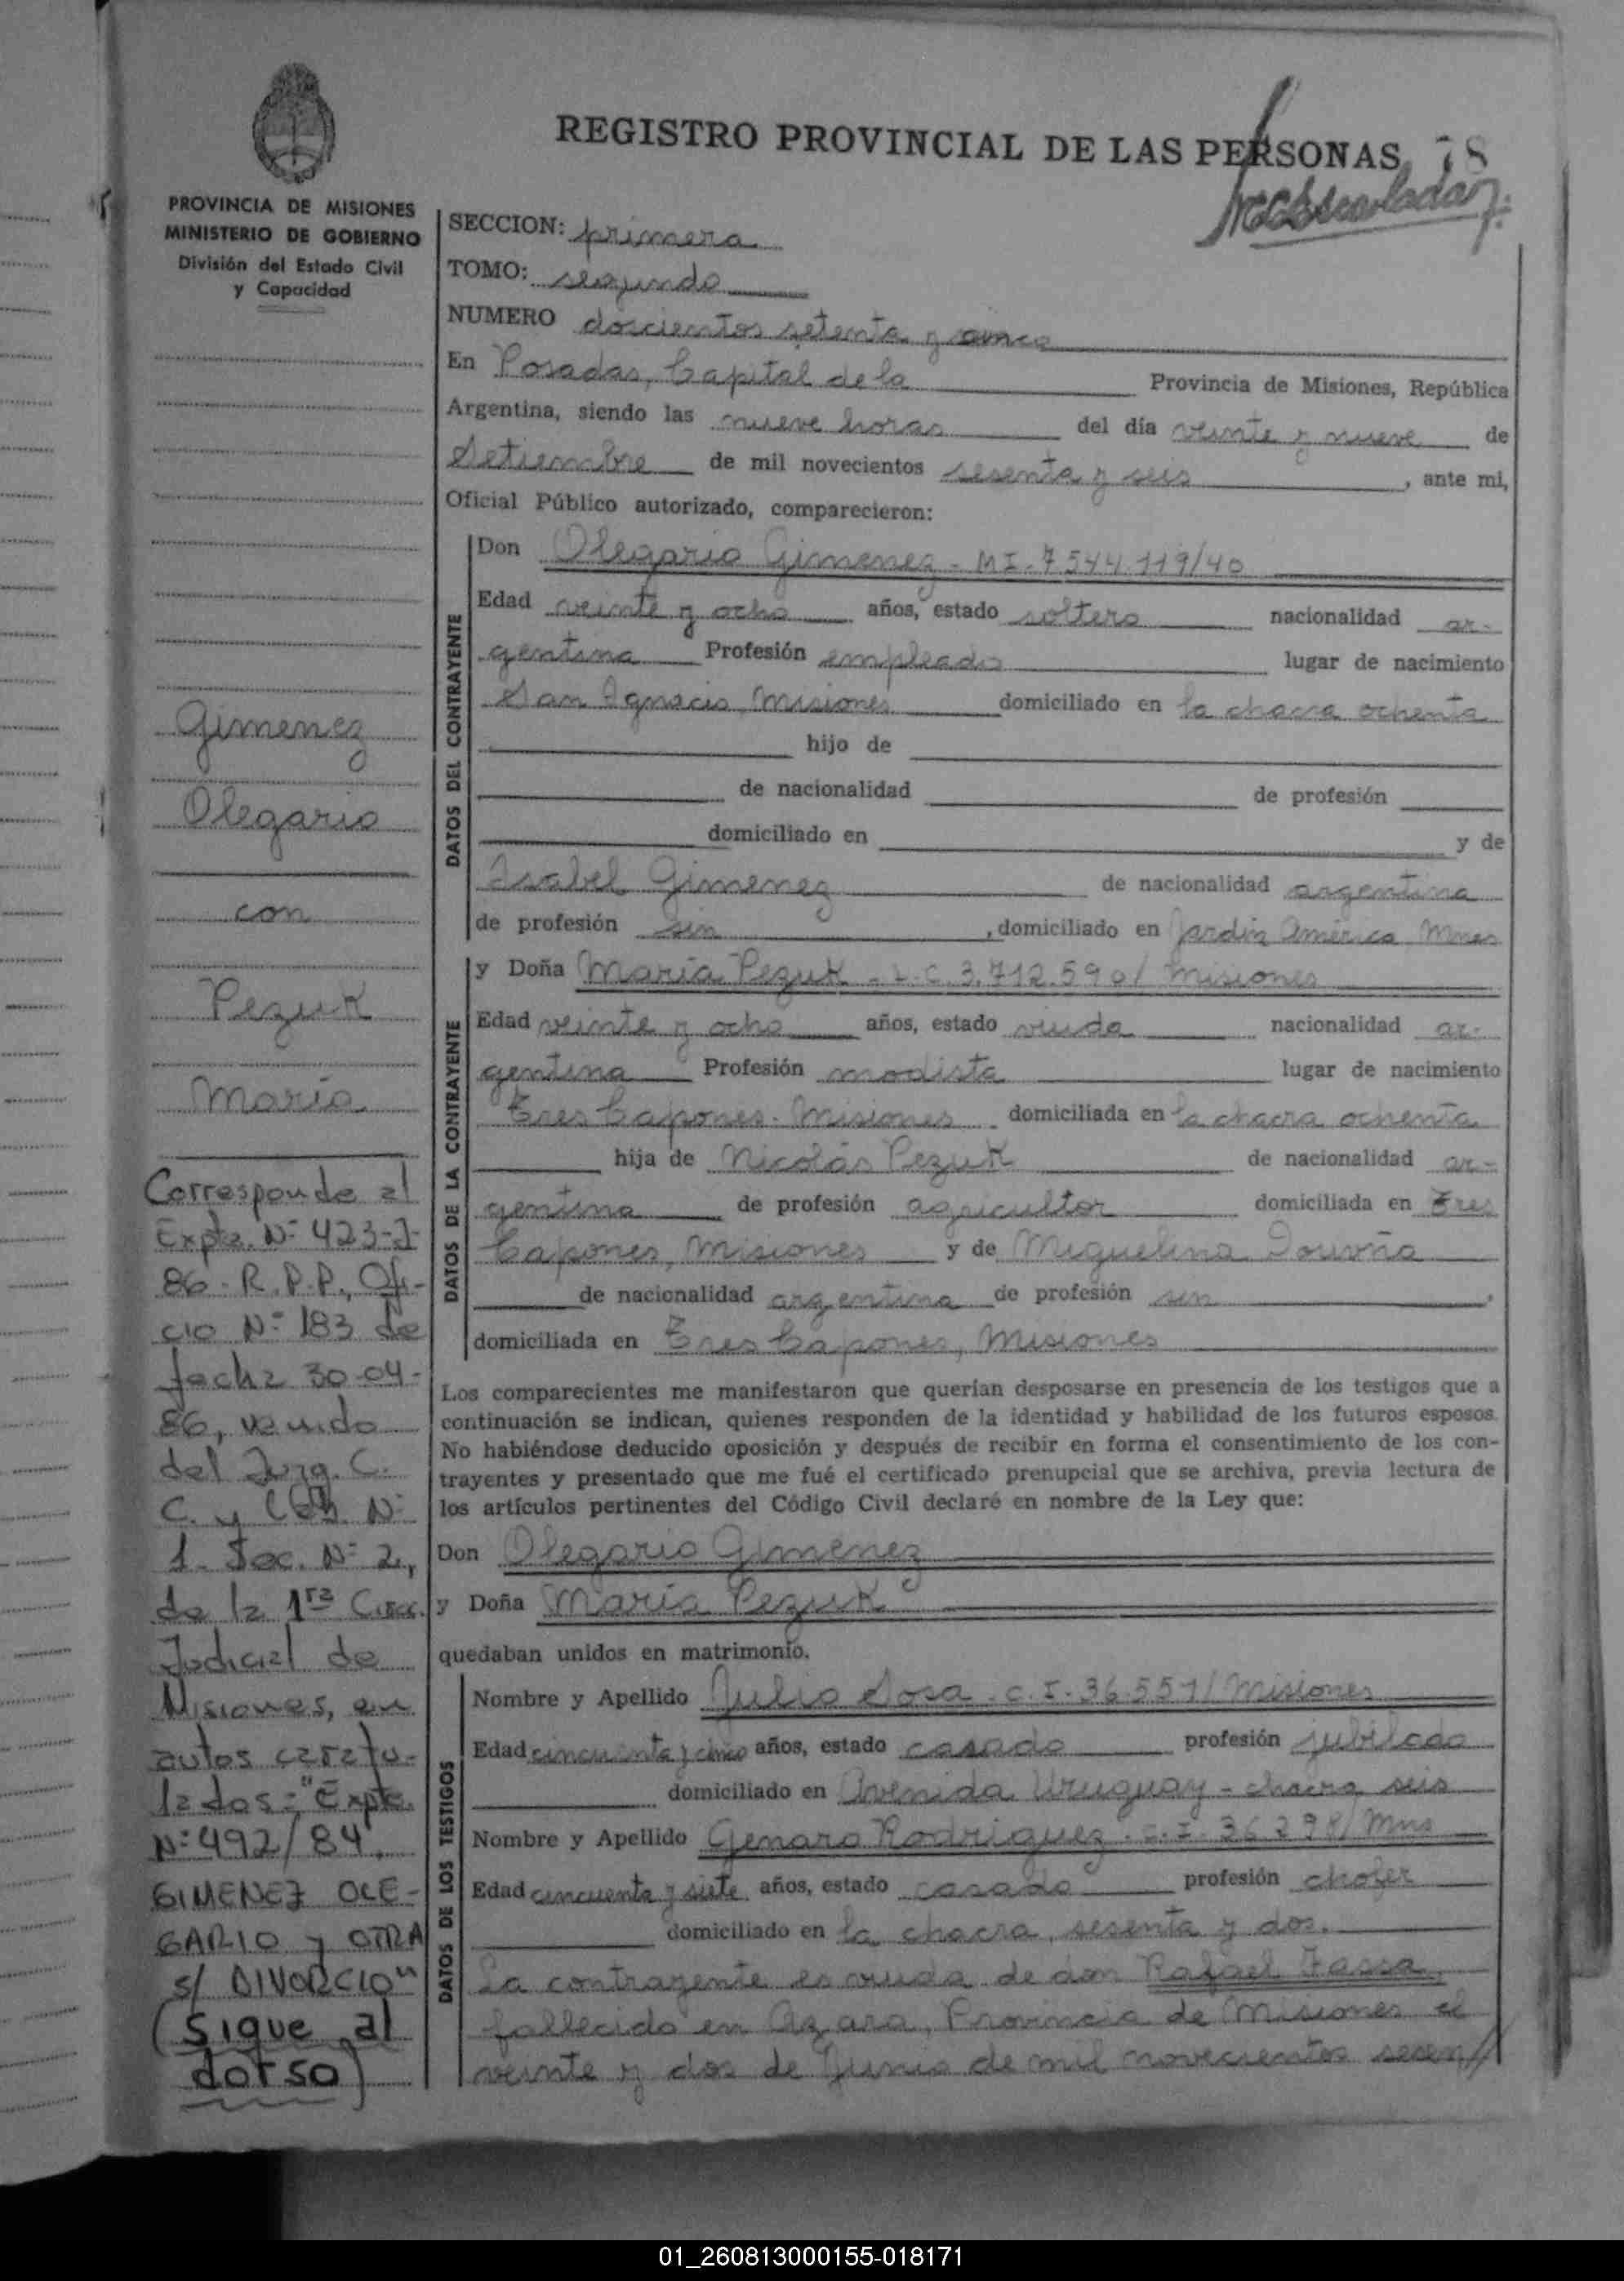 REGISTRO PROVINCIAL DE LAS PERSONAS 78
PROVINCIA DE MISIONES
MINISTERIO DE GOBIERNO
División del Estado Civil
y Capacidad
Gimenez
Olegario
con
Pezuk
María
Corresponde al
Expte. Nº 423-J-
86 - R.P.P., Ofi-
cio Nº 183 de
fecha 30-04-
86, venido
del Juzg. C.
C. y Nº
1 - Sec. Nº 2,
de la 1ra Circ.
Judicial de
Misiones, en
autos caratu-
lados: "Expte.
Nº 492/84,
GIMENEZ OLE-
GARIO y OTRA
s/ DIVORCIO"
(Sigue al
dorso)
SECCION: primera
TOMO: segundo
NUMERO doscientos setenta y cinco
En Posadas, Capital de la Provincia de Misiones, República
Argentina, siendo las nueve horas del día veinte y nueve de
Setiembre de mil novecientos sesenta y seis, ante mi,
Oficial Público autorizado, comparecieron:
DATOS DEL CONTRAYENTE
Don Olegario Gimenez - M I. 7.544.119/40
Edad veinte y ocho años, estado soltero nacionalidad ar-
gentina Profesión empleado lugar de nacimiento
San Ignacio, Misiones domiciliado en la chacra ochenta
hijo de
de nacionalidad de profesión
domiciliado en y de
Isabel Gimenez de nacionalidad argentina
de profesión sin, domiciliado en Jardín América Mnes
DATOS DE LA CONTRAYENTE
y Doña María Pezuk - L.C. 3.712.590/ Misiones
Edad veinte y ocho años, estado viuda nacionalidad ar-
gentina Profesión modista lugar de nacimiento
Tres Capones - Misiones domiciliada en la chacra ochenta
hija de Nicolás Pezuk de nacionalidad ar-
gentina de profesión agricultor domiciliada en Tres
Capones, Misiones y de Miguelina
de nacionalidad argentina de profesión sin,
domiciliada en Tres Capones, Misiones
Los comparecientes me manifestaron que querían desposarse en presencia de los testigos que a
continuación se indican, quienes responden de la identidad y habilidad de los futuros esposos.
No habiéndose deducido oposición y después de recibir en forma el consentimiento de los con-
trayentes y presentado que me fué el certificado prenupcial que se archiva, previa lectura de
los artículos pertinentes del Código Civil declaré en nombre de la Ley que:
Don Olegario Gimenez
y Doña María Pezuk
quedaban unidos en matrimonio.
DATOS DE LOS TESTIGOS
Nombre y Apellido Julio Sosa - C.I. 36.551/ Misiones
Edad cincuenta y cinco años, estado casado profesión jubilado
domiciliado en Avenida Uruguay - chacra seis
Nombre y Apellido Genaro Rodriguez - C.I. 36.298/ Mns
Edad cincuenta y siete años, estado casado profesión chofer
domiciliado en la chacra sesenta y dos.
La contrayente es viuda de don Rafael Fassa,
fallecido en Azara, Provincia de Misiones el
veinte y dos de Junio de mil novecientos sesen//
01_260813000155-018171